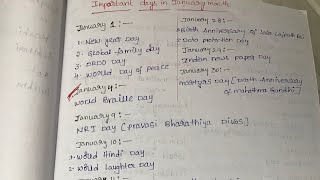 Important days in January month
January 1 :-
1. New year Day
2. Global family day
3. DRDO Day
4. World Day of peace
January 4 :-
World Braille Day
January 9 :-
NRI Day [Pravasi Bharathiya Divas]
January 10 :-
1. World Hindi Day
2. World laughter Day
January 11 :-
January 28 :-
Birth Anniversary of Lala Lajpat Rai
2. Data protection Day
January 29 :-
Indian news paper Day
January 30 :-
Martyrs Day [Death Anniversary
of mahathma Gandhi]